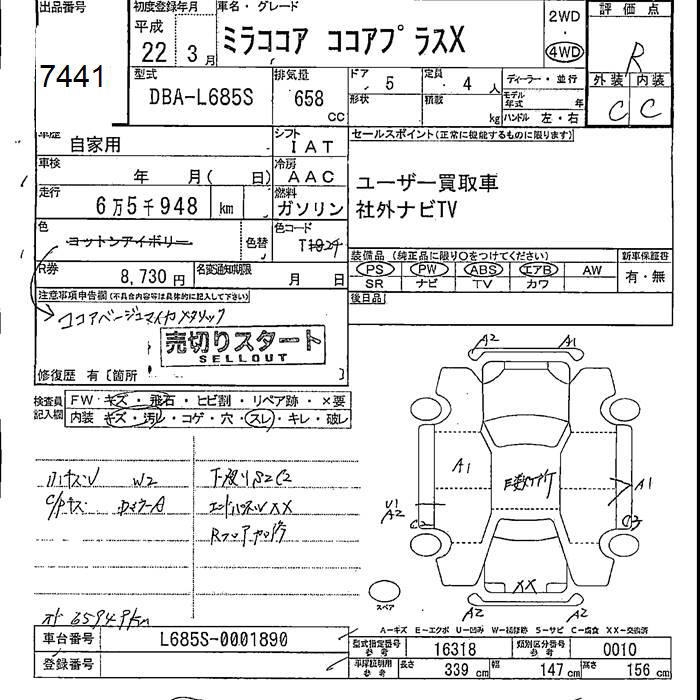 出品番号
7441
初度登録年月
平成
22 3月
車名・グレード
ミラココア ココアプラスX
2WD
・
4WD
評価点
R
外装 内装
C C
型式
DBA-L685S
排気量
658
CC
ドア 5
定員 4 人
形状
積載 kg
ディーラー・並行
モデル年式 年
ハンドル 左・右
車歴
自家用
シフト
IAT
車検
年 月( 日)
冷房
AAC
走行
6万5千948 km
燃料
ガソリン
セールスポイント(正常に機能するものに限ります)
ユーザー買取車
社外ナビTV
色
コットンアイボリー
色替
色コード
R券
8,730円
名変通知期限
月 日
装備品 (純正品に限り○をつけてください)
PS PW ABS エアB AW
SR ナビ TV カワ
新車保証書
有・無
後日品
注意事項申告欄(不具合内容等は具体的に記入して下さい)
ココアベージュマイカメタリック
売切りスタート
SELLOUT
修復歴 有〔箇所 〕
検査員記入欄
FW キズ・飛石・ヒビ割・リペア跡・×要
内装 キズ・汚レ・コゲ・穴・スレ・キレ・破レ
W2
XX
A2 A1
A1
A1
U1
A2
C2
XX
A2 A2
スペア
A-キズ E-エクボ U-凹み W-補修跡 S-サビ C-腐食 XX-交換済
車台番号
L685S-0001890
登録番号
型式指定番号
参考
16318
類別区分番号
参考
0010
車庫証明用
参考
長さ 339 cm
幅 147 cm
高さ 156 cm